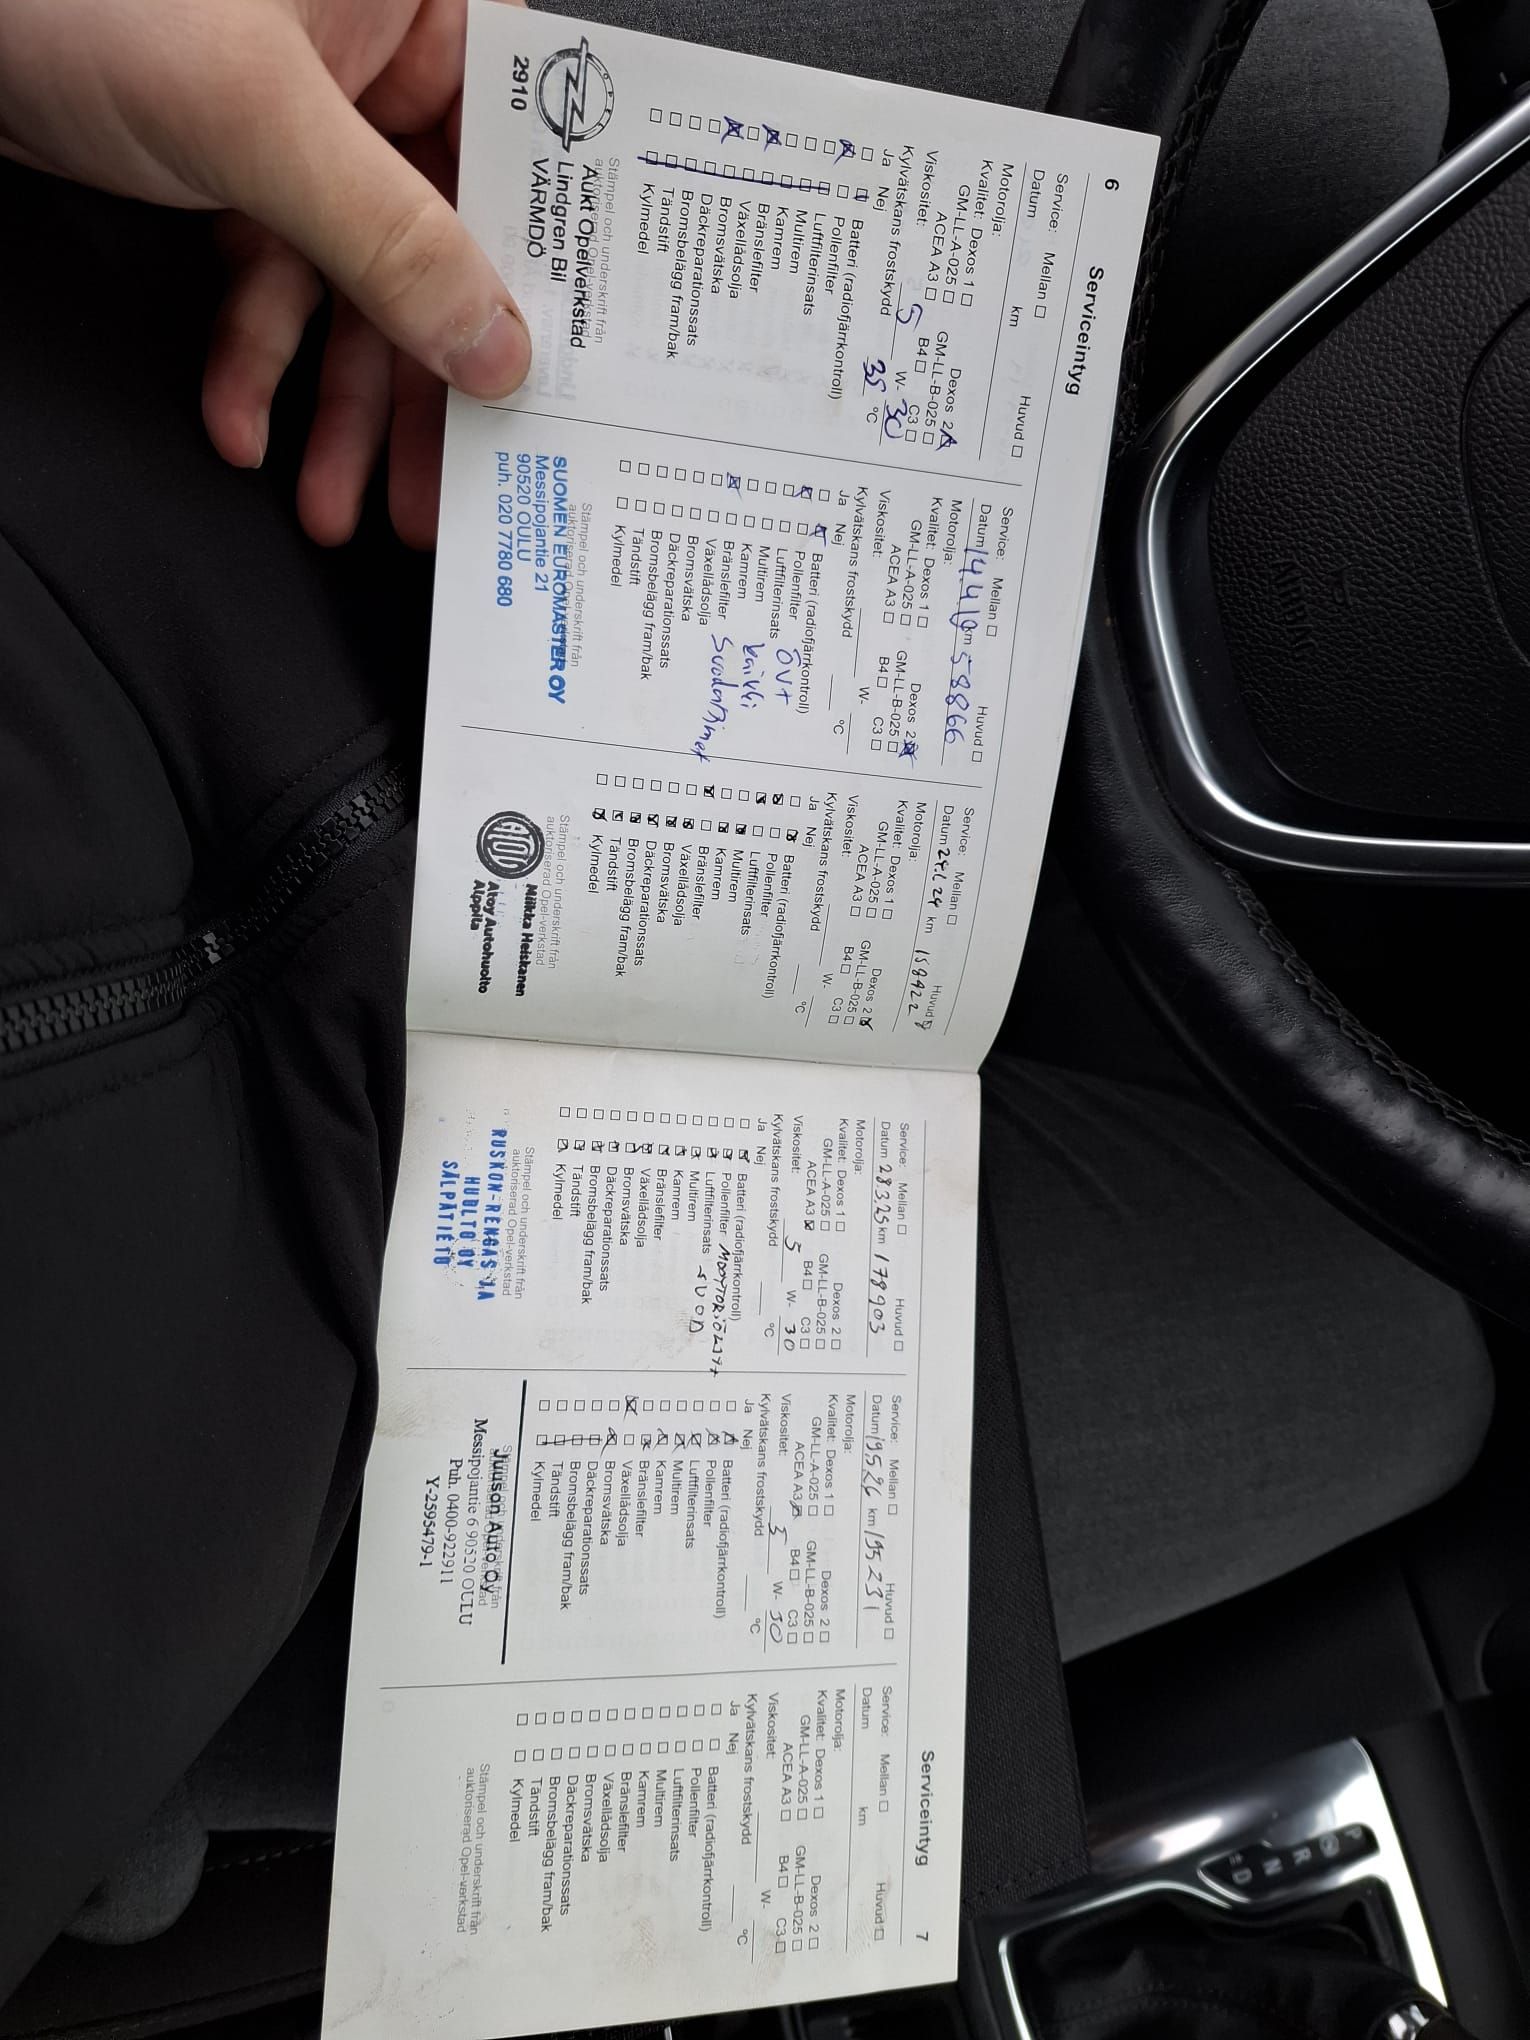 6
Serviceintyg
Service: Mellan Huvud
Datum km
Motorolja:
Kvalitet: Dexos 1 Dexos 2
GM-LL-A-025 GM-LL-B-025
ACEA A3 B4 C3
Viskositet: 5 W- 30
Kylvätskans frostskydd 35 °C
Ja Nej
Batteri (radiofjärrkontroll)
Pollenfilter
Luftfilterinsats
Multirem
Kamrem
Bränslefilter
Växellådsolja
Bromsvätska
Däckreparationssats
Bromsbelägg fram/bak
Tändstift
Kylmedel
Stämpel och underskrift från
auktoriserad Opel-verkstad
OPEL
Aukt Opelverkstad
Lindgren Bil
2910 VÄRMDÖ
Service: Mellan Huvud
Datum 14.4.19 km 58866
Motorolja:
Kvalitet: Dexos 1 Dexos 2
GM-LL-A-025 GM-LL-B-025
ACEA A3 B4 C3
Viskositet: W-
Kylvätskans frostskydd °C
Ja Nej
Batteri (radiofjärrkontroll)
Pollenfilter
Luftfilterinsats ÖVT
Multirem
Kamrem kaikki
Bränslefilter
Växellådsolja
Bromsvätska
Däckreparationssats
Bromsbelägg fram/bak
Tändstift
Kylmedel
Stämpel och underskrift från
auktoriserad Opel-verkstad
SUOMEN EUROMASTER OY
Messipojantie 21
90520 OULU
puh. 020 7780 680
Service: Mellan Huvud
Datum 24.1.24 km 158922
Motorolja:
Kvalitet: Dexos 1 Dexos 2
GM-LL-A-025 GM-LL-B-025
ACEA A3 B4 C3
Viskositet: W-
Kylvätskans frostskydd °C
Ja Nej
Batteri (radiofjärrkontroll)
Pollenfilter
Luftfilterinsats
Multirem
Kamrem
Bränslefilter
Växellådsolja
Bromsvätska
Däckreparationssats
Bromsbelägg fram/bak
Tändstift
Kylmedel
Stämpel och underskrift från
auktoriserad Opel-verkstad
Miikka Heiskanen
Atoy Autohuolto
Alppila
Serviceintyg
7
Service: Mellan Huvud
Datum 28.3.25 km 178903
Motorolja:
Kvalitet: Dexos 1 Dexos 2
GM-LL-A-025 GM-LL-B-025
ACEA A3 B4 C3
Viskositet: 5 W- 30
Kylvätskans frostskydd °C
Ja Nej
Batteri (radiofjärrkontroll)
Pollenfilter MOOTTORIÖLJY+
Luftfilterinsats
Multirem
Kamrem
Bränslefilter
Växellådsolja
Bromsvätska
Däckreparationssats
Bromsbelägg fram/bak
Tändstift
Kylmedel
Stämpel och underskrift från
auktoriserad Opel-verkstad
RUSKON-RENGAS JA
HUOLTO OY
SÄLPÄTIE 10
Service: Mellan Huvud
Datum 19.5.26 km 195231
Motorolja:
Kvalitet: Dexos 1 Dexos 2
GM-LL-A-025 GM-LL-B-025
ACEA A3 B4 C3
Viskositet: 5 W- 30
Kylvätskans frostskydd °C
Ja Nej
Batteri (radiofjärrkontroll)
Pollenfilter
Luftfilterinsats
Multirem
Kamrem
Bränslefilter
Växellådsolja
Bromsvätska
Däckreparationssats
Bromsbelägg fram/bak
Tändstift
Kylmedel
Stämpel och underskrift från
auktoriserad Opel-verkstad
Juuson Auto Oy
Messipojantie 6 90520 OULU
Puh. 0400-922911
Y-2595479-1
Service: Mellan Huvud
Datum km
Motorolja:
Kvalitet: Dexos 1 Dexos 2
GM-LL-A-025 GM-LL-B-025
ACEA A3 B4 C3
Viskositet: W-
Kylvätskans frostskydd °C
Ja Nej
Batteri (radiofjärrkontroll)
Pollenfilter
Luftfilterinsats
Multirem
Kamrem
Bränslefilter
Växellådsolja
Bromsvätska
Däckreparationssats
Bromsbelägg fram/bak
Tändstift
Kylmedel
Stämpel och underskrift från
auktoriserad Opel-verkstad
P
R
N
D